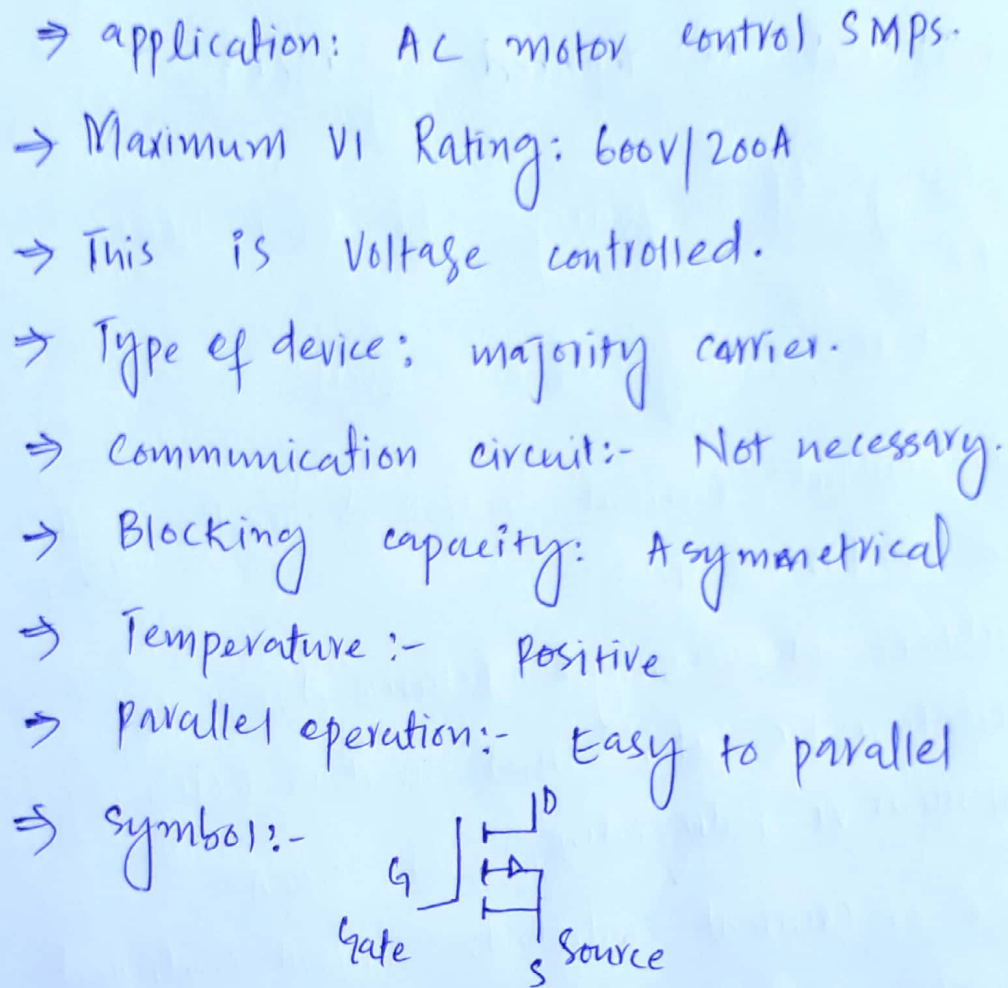 ⇒ application: AC motor control, SMPS.
→ Maximum VI Rating: 600V/200A
→ This is Voltage controlled.
⇒ Type of device: majority carrier.
⇒ Communication circuit:- Not necessary.
→ Blocking capacity: Asymmetrical
⇒ Temperature :- Positive
→ parallel operation:- Easy to parallel
⇒ symbol:-
D
G
Gate
S Source